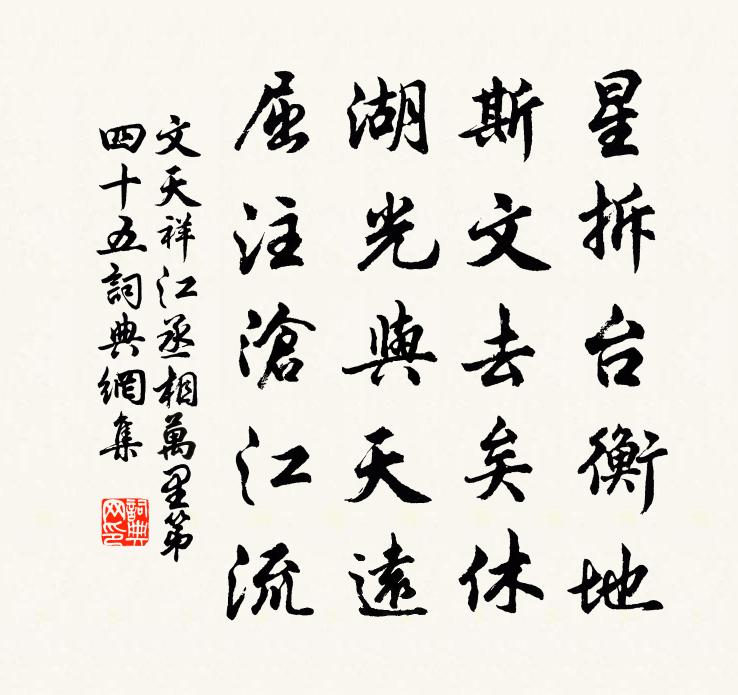 星拆台衡地
斯文去矣休
湖光與天遠
屈注滄江流
文天祥江丞相萬里第
四十五詞典網集
詞典
网印